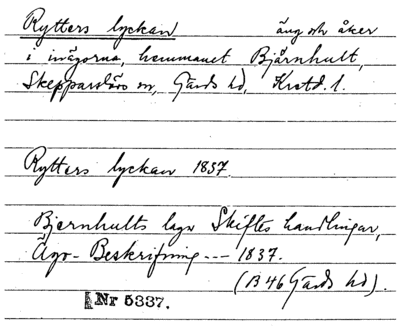 Rytters lyckan äng och åker
i inägorna, hemmanet Bjärnhult,
Skepparslövs sn, Gärds hd, Krstd. l.
Rytters lyckan 1837.
Bjernhults laga Skiftes handlingar,
Ägo-Beskrifning --- 1837.
(B 46 Gärds hd).
Nr 5337.